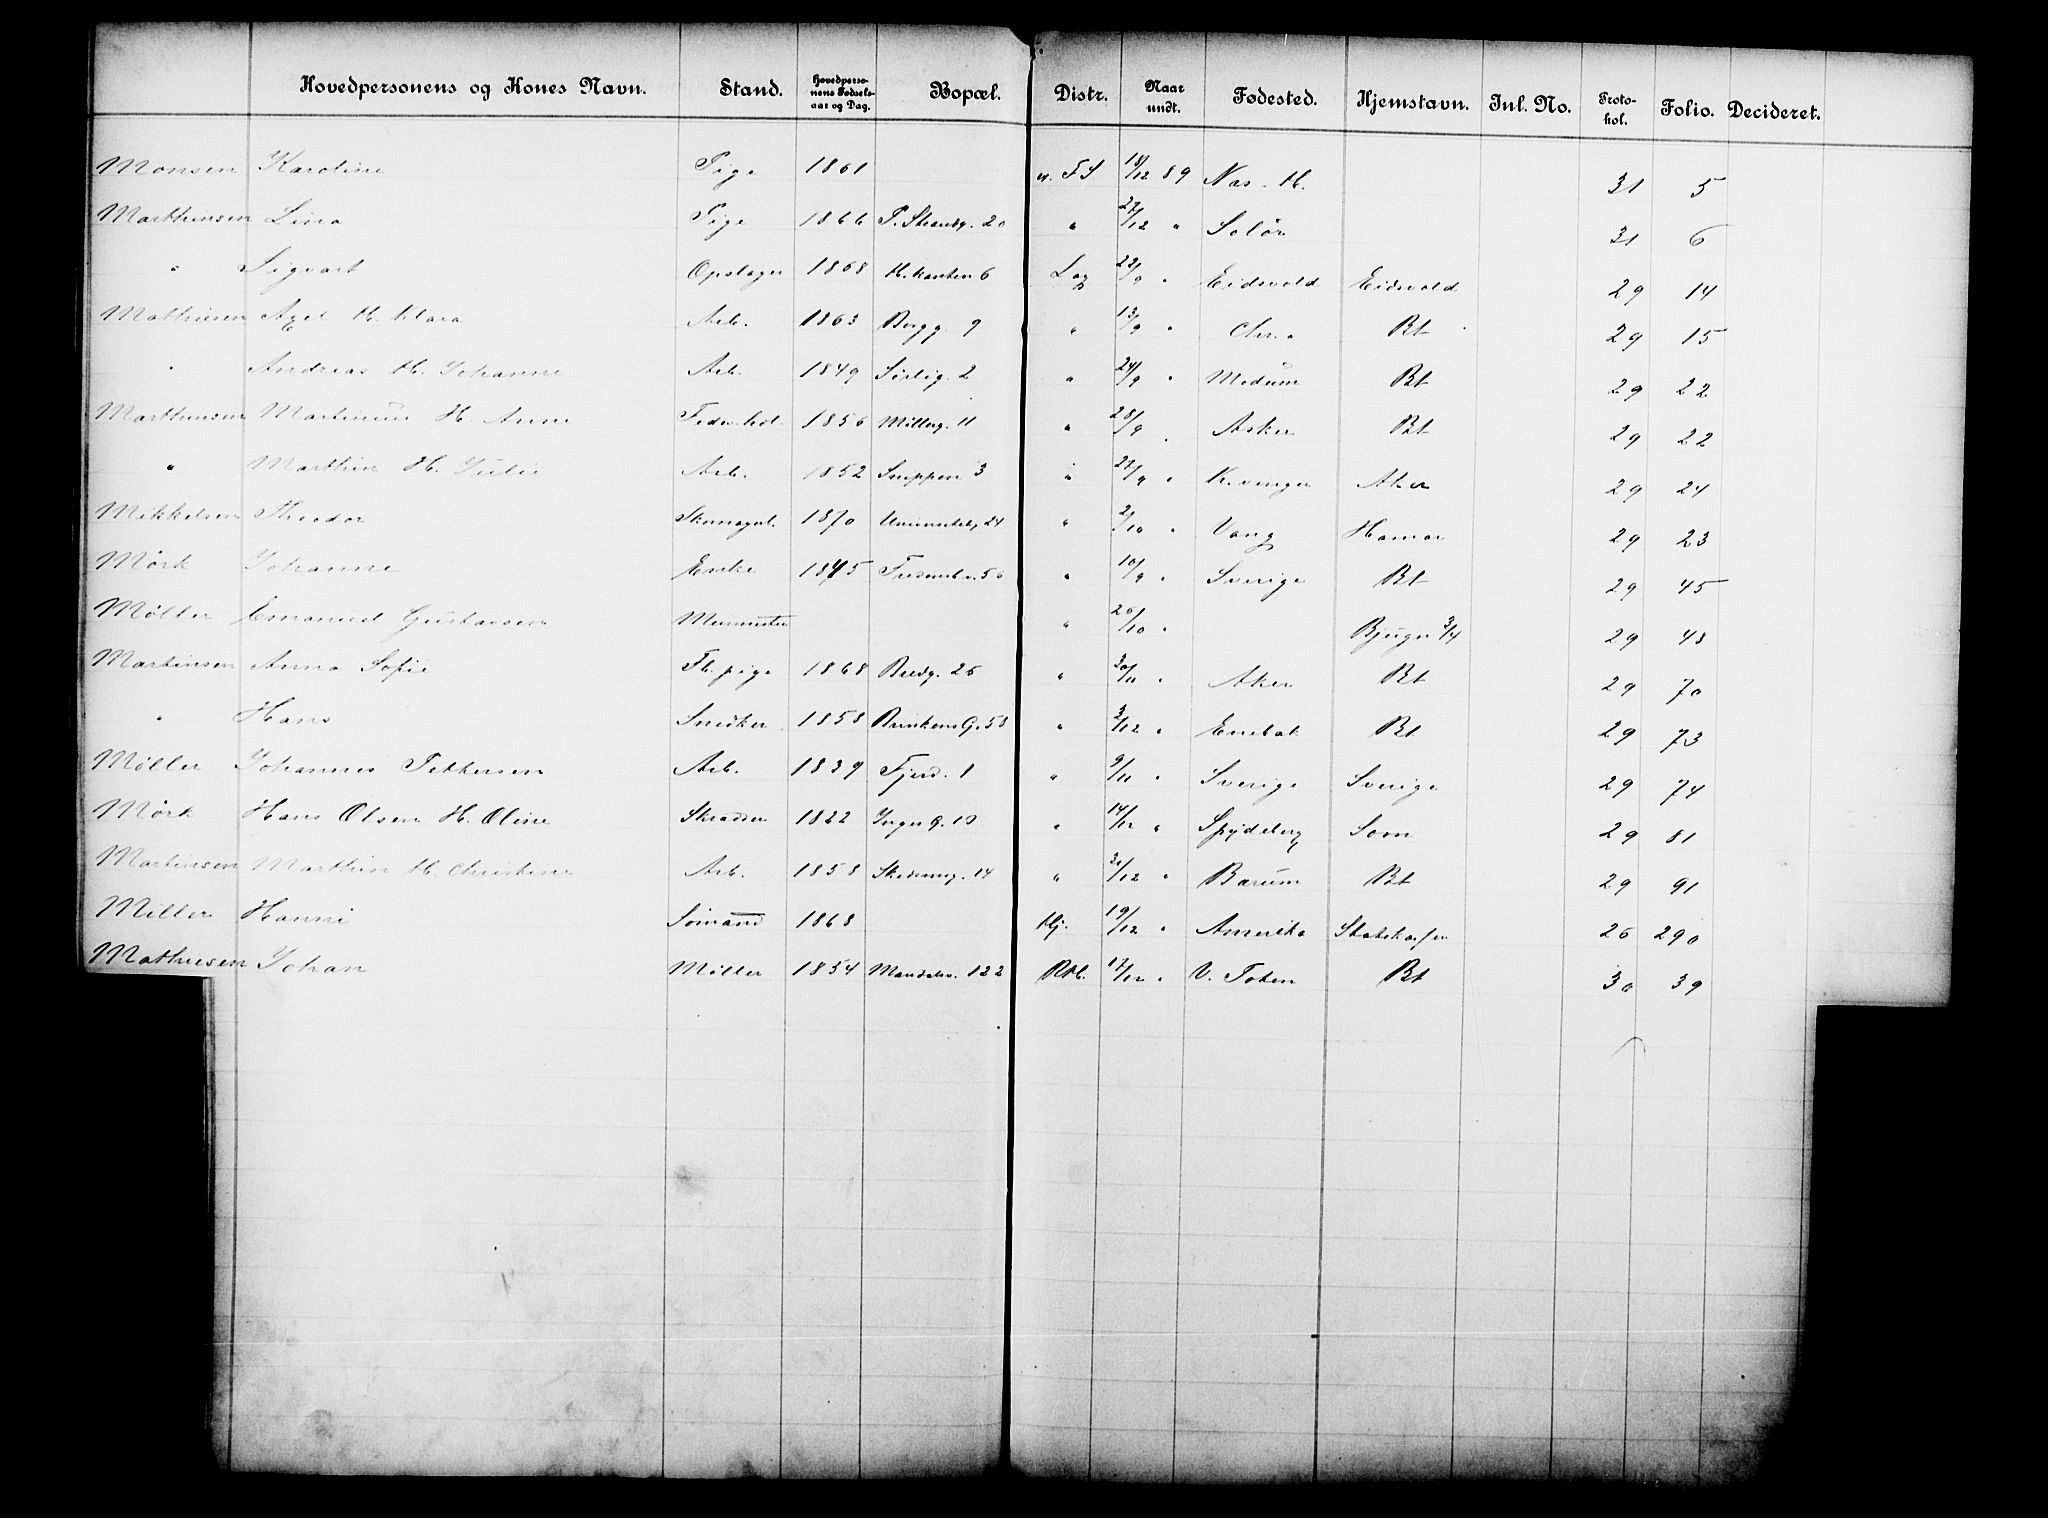 Hovedpersonens og Kones Navn. Stand. Hovedpersonens Fødselsaar og Dag. Bopæl. Distr. Naar undt. Fødested. Hjemstavn. Inl. No. Protokol. Folio. Decideret.
Monsen Karoline Pige 1861 FS 18/12 89 Næs. H. 31 5
Marthinsen Lina Pige 1866 P. Strandg. 20 " 27/12 " Solör 31 6
" Sigvart Opslager 1868 6 Log 22/9 " Eidsvold Eidsvold 29 14
Mathiesen Axel H. Klara Arb. 1863 Bergg 9 " 13/9 " Chr.a Bt 29 15
" Andreas H. Johanne Arb. 1849 Sörlig. 2 " 24/9 " Modum Bt 29 22
Marthinsen Martinius H. Anne 1856 Möllerg. 11 " 28/9 " Asker Bt 29 22
" Marthin H. Julie Arb. 1852 Snippen 3 " 27/9 " K.vinger Aker 29 24
Mikkelsen Theodor Skomagersv. 1870 24 " 2/10 " Vang Hamar 29 23
Mörk Johanne Enke 1845 Fredensb.v. 56 " 10/9 " Sverige Bt 29 45
Möller Emanuel Gustavsen Murmester " 26/10 " Bjugn 3/4 29 48
Martinsen Anna Sofie Fb. pige 1868 Bredg. 26 " 30/11 " Aker Bt 29 70
" Hans Snedker 1858 Brinkens G. 58 " 3/12 " Enebak Bt 29 73
Möller Johannes Pettersen Arb. 1839 Fjerd. 1 " 9/11 " Sverige Sverige 29 74
Mörk Hans Olsen H. Oline Skrædder 1822 Inger G. 10 " 14/12 " Spydeberg Som 29 81
Martinsen Marthin H. Christine Arb. 1858 14 " 31/12 " Barum Bt 29 91
Miller Hanni Sömand 1868 Hj. 19/12 " Amerika 26 290
Mathiesen Johan Möller 1854 Maridalsv. 122 Rkb. 17/12 " V. Toten Bt 30 39